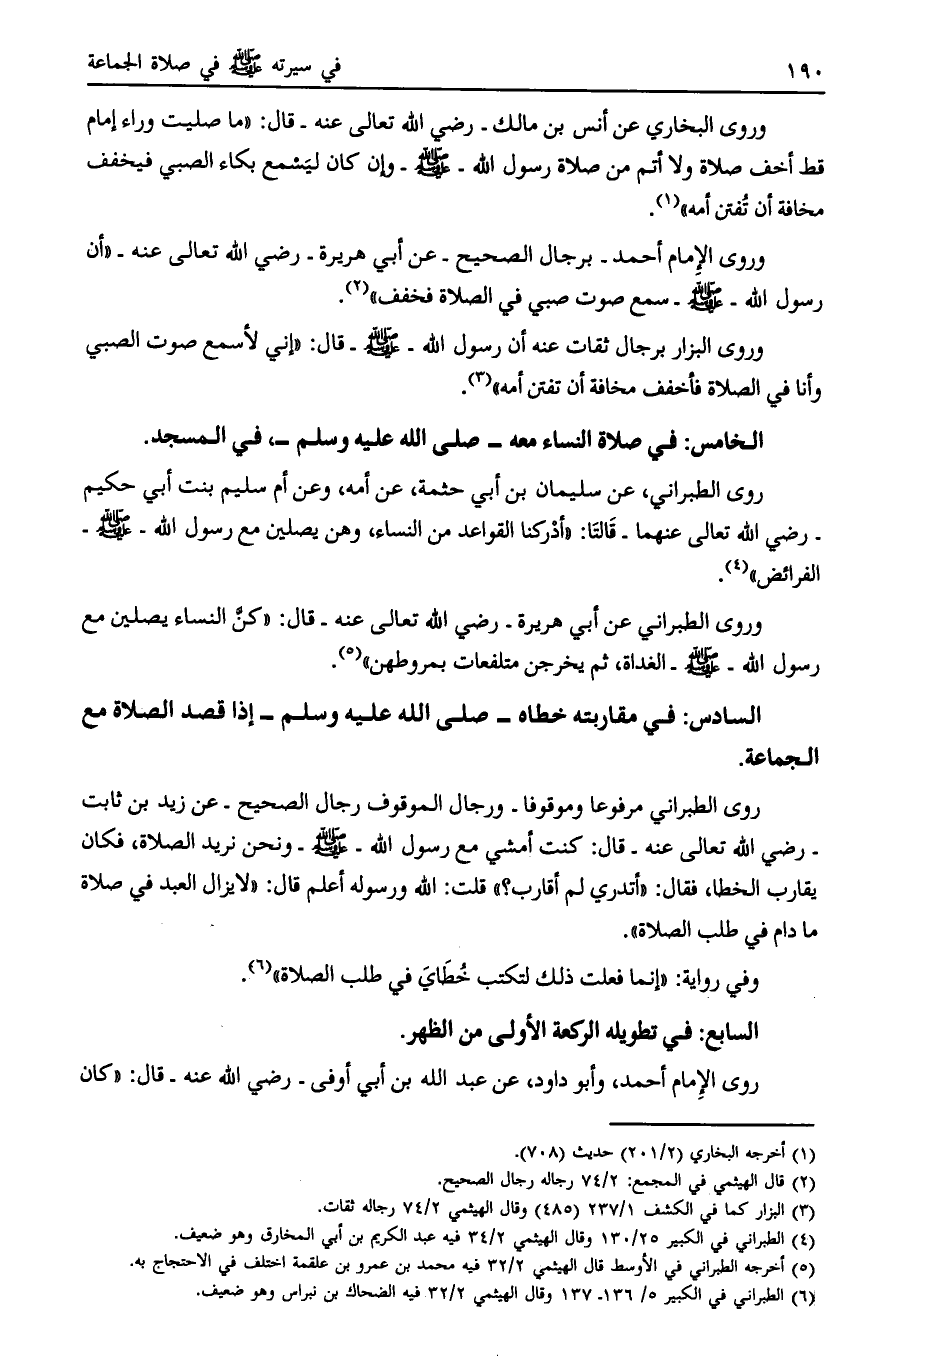 ١٩٠ في سيرته ﷺ في صلاة الجماعة
وروى البخاري عن أنس بن مالك ـ رضي الله تعالى عنه ـ قال: «ما صليت وراء إمام
قط أخف صلاة ولا أتم من صلاة رسول الله ـ ﷺ ـ وإن كان ليَسْمع بكاء الصبي فيخفف
مخافة أن تُفتن أمه»(١).
وروى الإِمام أحمد ـ برجال الصحيح ـ عن أبي هريرة ـ رضي الله تعالى عنه ـ «أن
رسول الله ـ ﷺ ـ سمع صوت صبي في الصلاة فخفف»(٢).
وروى البزار برجال ثقات عنه أن رسول الله ـ ﷺ ـ قال: «إني لأسمع صوت الصبي
وأنا في الصلاة فأخفف مخافة أن تفتن أمه»(٣).
الخامس: في صلاة النساء معه ـ صلى الله عليه وسلم ـ، في المسجد.
روى الطبراني، عن سليمان بن أبي حثمة، عن أمه، وعن أم سليم بنت أبي حكيم
ـ رضي الله تعالى عنهما ـ قَالتَا: «أدْركنا القواعد من النساء، وهن يصلين مع رسول الله ـ ﷺ ـ
الفرائض»(٤).
وروى الطبراني عن أبي هريرة ـ رضي الله تعالى عنه ـ قال: «كنَّ النساء يصلين مع
رسول الله ـ ﷺ ـ الغداة، ثم يخرجن متلفعات بمروطهن»(٥).
السادس: في مقاربته خطاه ـ صلى الله عليه وسلم ـ إذا قصد الصلاة مع
الجماعة.
روى الطبراني مرفوعا وموقوفا ـ ورجال الموقوف رجال الصحيح ـ عن زيد بن ثابت
ـ رضي الله تعالى عنه ـ قال: كنت أمشي مع رسول الله ـ ﷺ ـ ونحن نريد الصلاة، فكان
يقارب الخطا، فقال: «أتدري لم أقارب؟» قلت: الله ورسوله أعلم قال: «لايزال العبد في صلاة
ما دام في طلب الصلاة».
وفي رواية: «إنما فعلت ذلك لتكتب خُطَايَ في طلب الصلاة»(٦).
السابع: في تطويله الركعة الأولى من الظهر.
روى الإِمام أحمد، وأبو داود، عن عبد الله بن أبي أوفى ـ رضي الله عنه ـ قال: «كان
(١) أخرجه البخاري (٢٠١/٢) حديث (٧٠٨).
(٢) قال الهيثمي في المجمع: ٧٤/٢ رجاله رجال الصحيح.
(٣) البزار كما في الكشف ٢٣٧/١ (٤٨٥) وقال الهيثمي ٧٤/٢ رجاله ثقات.
(٤) الطبراني في الكبير ١٣٠/٢٥ وقال الهيثمي ٣٤/٢ فيه عبد الكريم بن أبي المخارق وهو ضعيف.
(٥) أخرجه الطبراني في الأوسط قال الهيثمي ٣٢/٢ فيه محمد بن عمرو بن علقمة اختلف في الاحتجاج به.
(٦) الطبراني في الكبير ٥/ ١٣٦ـ ١٣٧ وقال الهيثمي ٣٢/٢ فيه الضحاك بن نبراس وهو ضعيف.